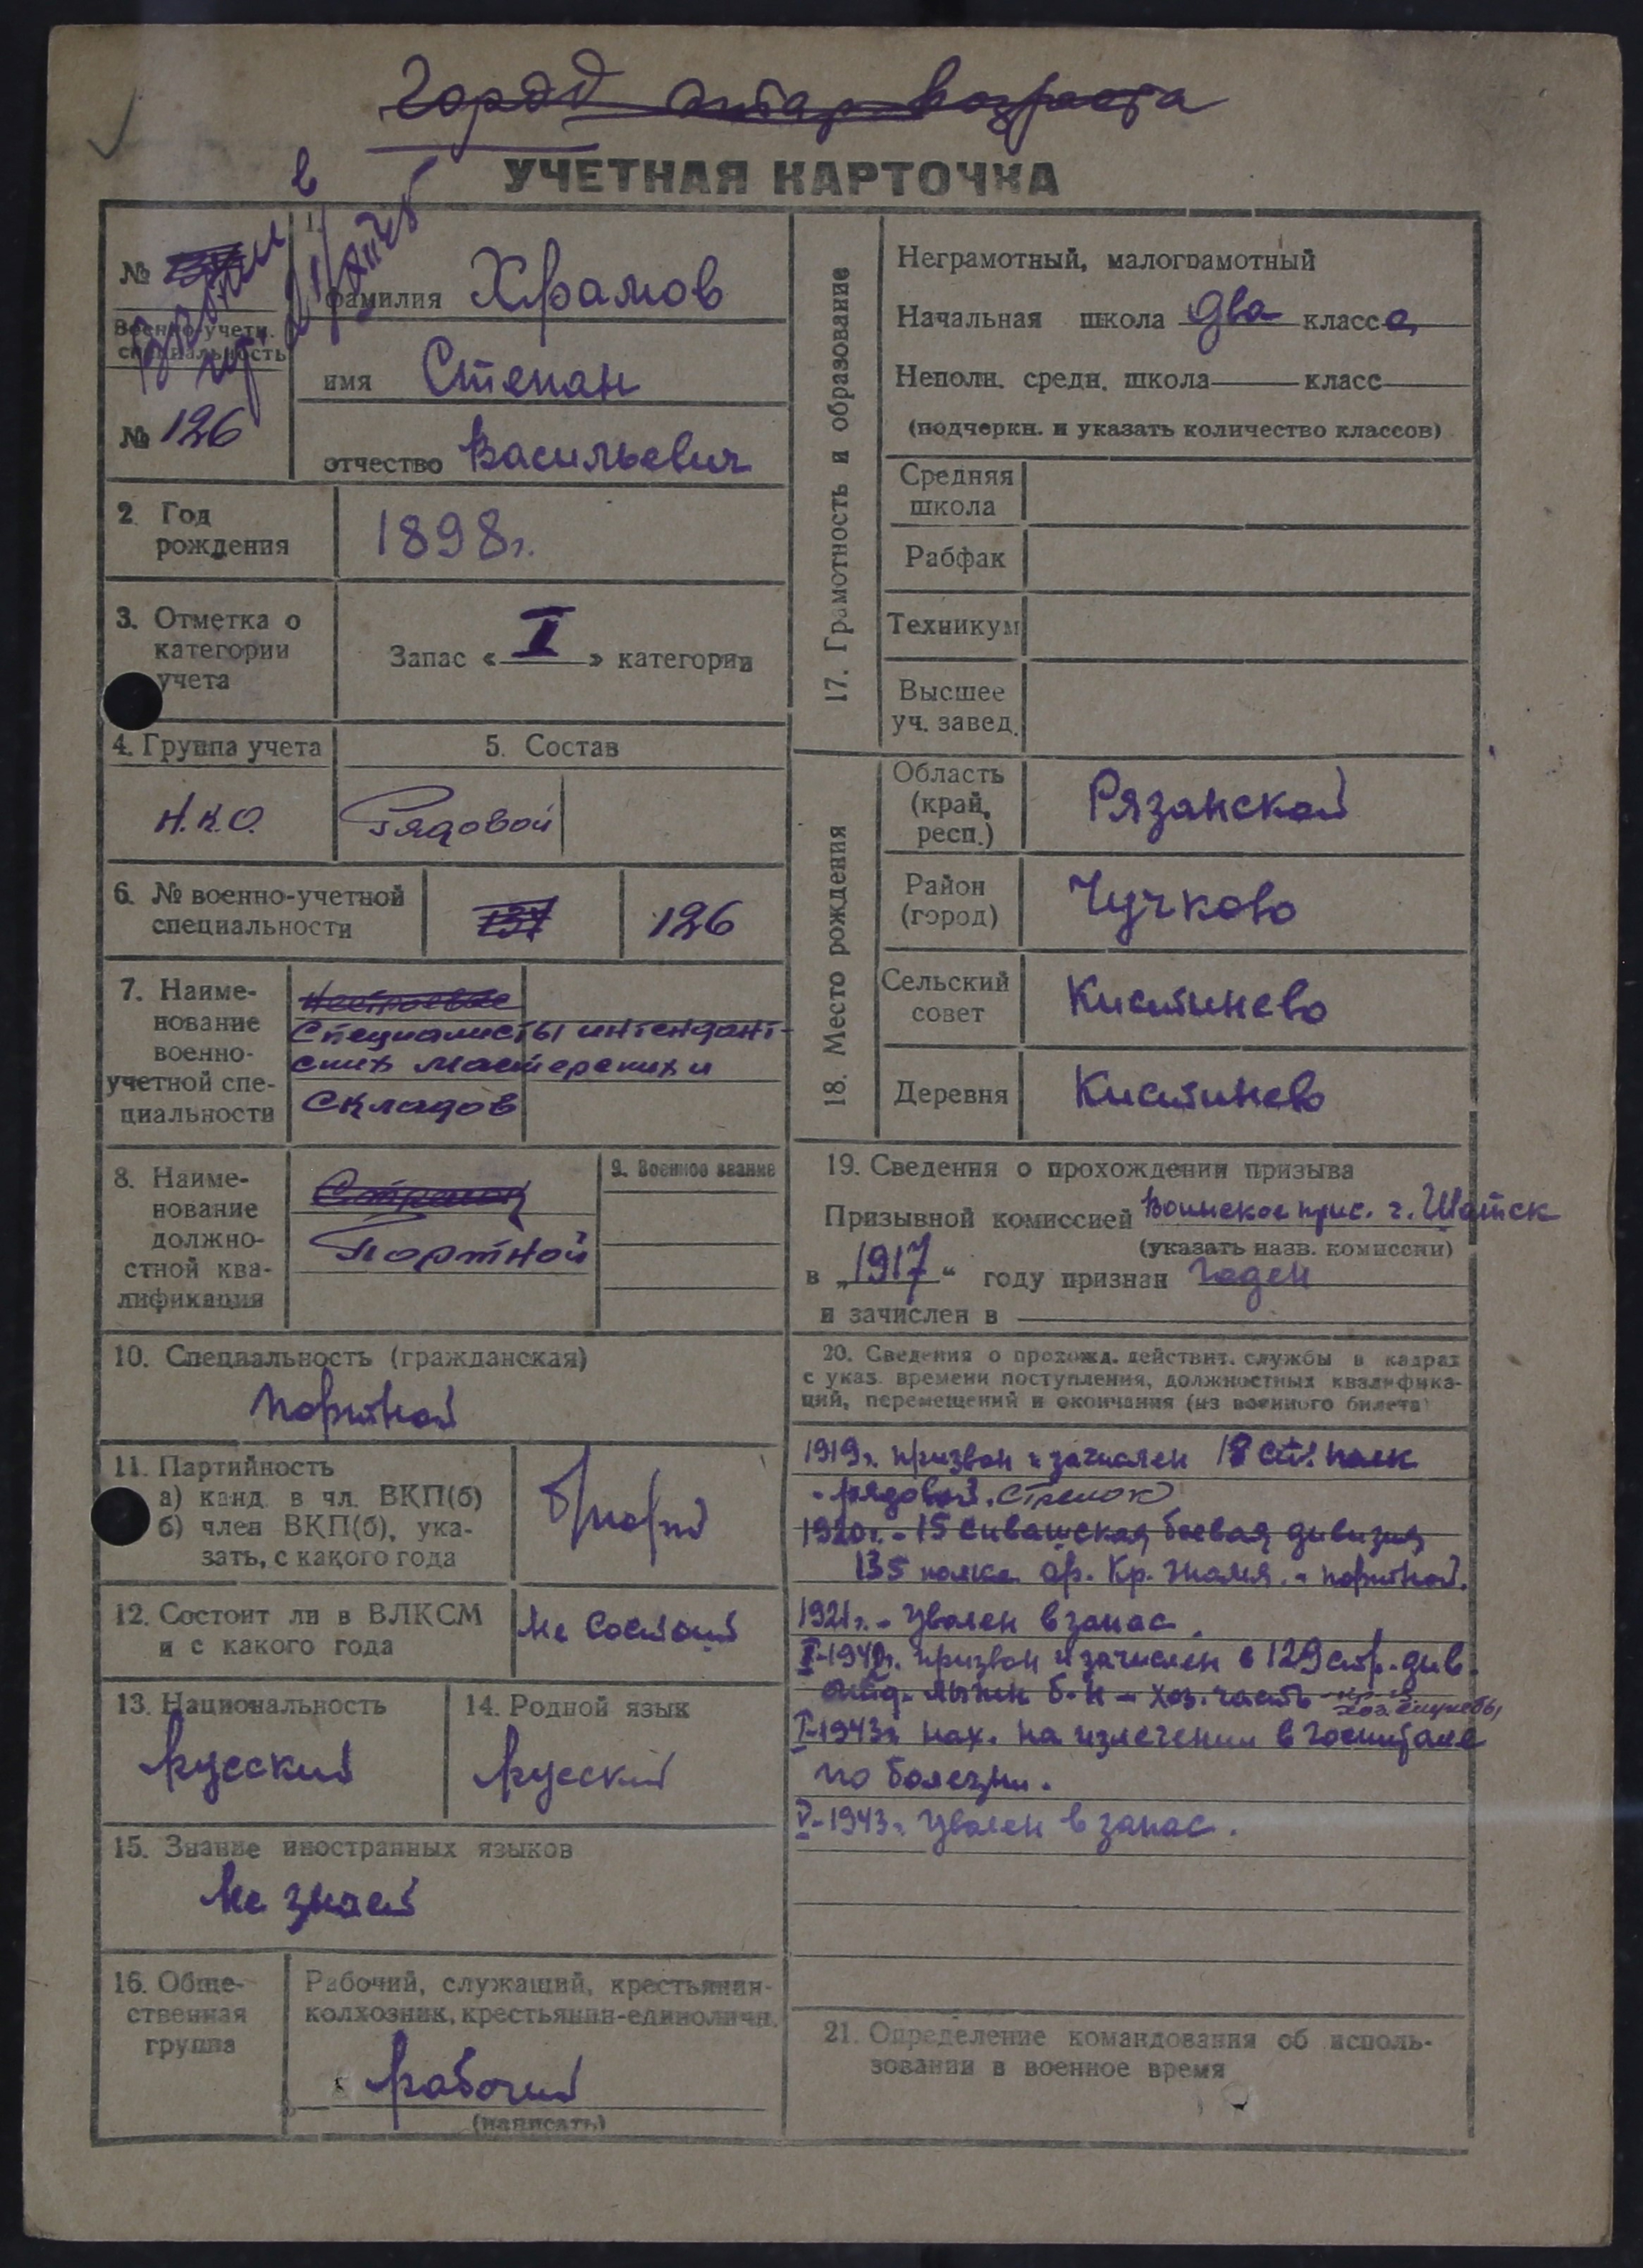 УЧЕТНАЯ КАРТОЧКА
№
Военно-учетн.
специальность
№ 126
1.
фамилия Храмов
имя Степан
отчество Васильевич
2. Год
рождения
1898г.
3. Отметка о
категории
учета
Запас « I » категории
4. Группа учета
Н.К.О.
5. Состав
Рядовой
6. № военно-учетной
специальности
137
126
7. Наиме-
нование
военно-
учетной спе-
циальности
Нестроевые
Специалисты интендант-
ских мастерских и
складов
8. Наиме-
нование
должно-
стной ква-
лификации
Портной
9. Военное звание
10. Специальность (гражданская)
портной
11. Партийность
а) канд. в чл. ВКП(б)
б) член ВКП(б), ука-
зать, с какого года
б/парт
12. Состоит ли в ВЛКСМ
и с какого года
не состоит
13. Национальность
русский
14. Родной язык
русский
15. Знание иностранных языков
не знает
16. Обще-
ственная
группа
Рабочий, служащий, крестьянин-
колхозник, крестьянин-единоличн.
рабочий
(написать)
17. Грамотность и образование
Неграмотный, малограмотный
Начальная школа два класса
Неполн. средн. школа класс
(подчеркн. и указать количество классов)
Средняя
школа
Рабфак
Техникум
Высшее
уч. завед.
18. Место рождения
Область
(край,
респ.)
Рязанской
Район
(город)
Чучково
Сельский
совет
Кистинево
Деревня
Кистинево
19. Сведения о прохождении призыва
Призывной комиссией Воинское прис. г. Шатск
(указать назв. комиссии)
в „1917“ году признан годен
и зачислен в
20. Сведения о прохожд. действит. службы в кадрах
с указ. времени поступления, должностных квалифика-
ций, перемещений и окончания (из военного билета)
1919г. призван и зачислен 18 ст. полк
- рядовой. стрелок
1920г. - 15 Сивашская боевая дивизия
135 полка ор. Кр. знамя. - портной.
1921г. - уволен в запас.
1942г. призван и зачислен в 129 стр. див.
отд. лыжн б-н - хоз. часть хоз. службы
I-1943г. нах. на излечении в госпитале
по болезни.
V-1943г. уволен в запас.
21. Определение командования об исполь-
зовании в военное время